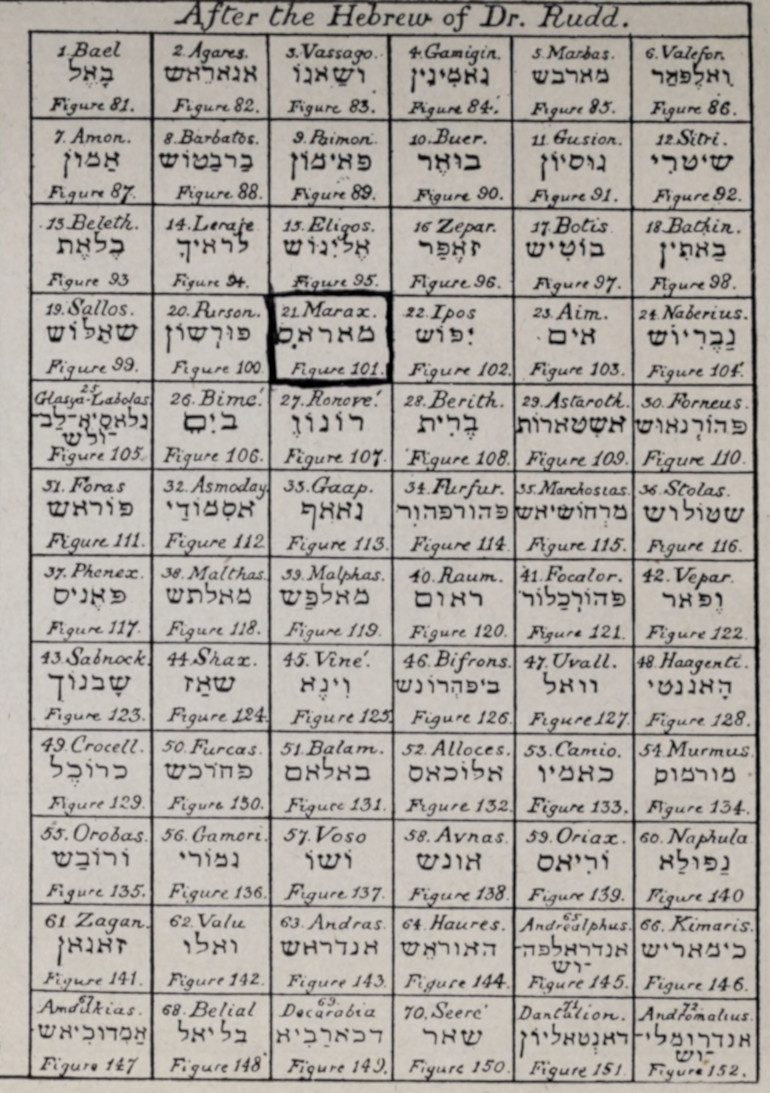 After the Hebrew of Dr. Rudd.
1. Bael
בָּאֵל
Figure 81.
2. Agares.
אגאראש
Figure 82.
3. Vassago.
ושָׁאגוֹ
Figure 83.
4. Gamigin.
גאמיגין
Figure 84.
5. Marbas.
מארבש
Figure 85.
6. Valefor.
ואלפאר
Figure 86.
7. Amon.
אַמוֹן
Figure 87.
8. Barbatos.
ברבטוש
Figure 88.
9. Paimon.
פאימון
Figure 89.
10. Buer.
בואר
Figure 90.
11. Gusion.
גוסיון
Figure 91.
12. Sitri.
שיטרי
Figure 92.
13. Beleth.
בלאת
Figure 93
14. Leraje
לראיך
Figure 94.
15. Eligos.
אליגוש
Figure 95.
16 Zepar.
זאפר
Figure 96.
17. Botis
בוטיש
Figure 97.
18. Bathin.
באתין
Figure 98.
19. Sallos.
שאלוש
Figure 99.
20. Purson.
פורשון
Figure 100
21. Marax.
מאראס
Figure 101.
22. Ipos
יפוש
Figure 102.
23. Aim.
אים
Figure 103.
24. Naberius.
נבריוש
Figure 104.
25
Glasya-Labolas.
גלאסיא-לב-
-ולש
Figure 105.
26. Bimé.
בים
Figure 106.
27. Ronové.
רונוו
Figure 107.
28. Berith.
ברית
Figure 108.
29. Astaroth.
אשטארות
Figure 109.
30. Forneus.
פהורנאוש
Figure 110.
31. Foras
פוראש
Figure 111.
32. Asmoday
אסמודי
Figure 112
33. Gaap.
גאאף
Figure 113.
34. Furfur.
פהורפהור
Figure 114.
35. Marchosias.
מרחושיאש
Figure 115.
36. Stolas.
שטולוש
Figure 116.
37. Phenex.
פאניס
Figure 117.
38. Malthas.
מאלתש
Figure 118.
39. Malphas.
מאלפש
Figure 119.
40. Raum.
ראום
Figure 120.
41. Focalor.
פהורכלור
Figure 121.
42. Vepar.
ופאר
Figure 122.
43. Sabnock.
שבנוך
Figure 123.
44. Shax.
שאז
Figure 124.
45. Viné.
וינא
Figure 125.
46. Bifrons.
ביפהרונש
Figure 126.
47. Uvall.
וואל
Figure 127.
48. Haagenti.
האגנטי
Figure 128.
49. Crocell.
כרוכל
Figure 129.
50. Furcas.
פהרכש
Figure 130.
51. Balam.
באלאם
Figure 131.
52. Alloces.
אלוכאס
Figure 132.
53. Camio.
כאמיו
Figure 133.
54. Murmus.
מורמוס
Figure 134.
55. Orobas.
ורובש
Figure 135.
56. Gamori.
גמורי
Figure 136.
57. Voso
ושו
Figure 137.
58. Avnas.
אונש
Figure 138.
59. Oriax.
וריאס
Figure 139.
60. Naphula
נפולא
Figure 140
61 Zagan.
זאגאן
Figure 141.
62. Valu
ואלו
Figure 142.
63. Andras.
אנדראש
Figure 143.
64. Haures.
האוראש
Figure 144.
65
Andrealphus.
אנדראלפה-
-וש
Figure 145.
66. Kimaris.
כימאריש
Figure 146.
67
Amdukias.
אמדוכיאש
Figure 147
68. Belial
בליאל
Figure 148
69.
Decarabia
דכארביא
Figure 149.
70. Seeré
שאר
Figure 150.
71
Dantalion.
דאנטאליון
Figure 151.
72.
Andromalius.
אנדרומלי-
-וש
Figure 152.